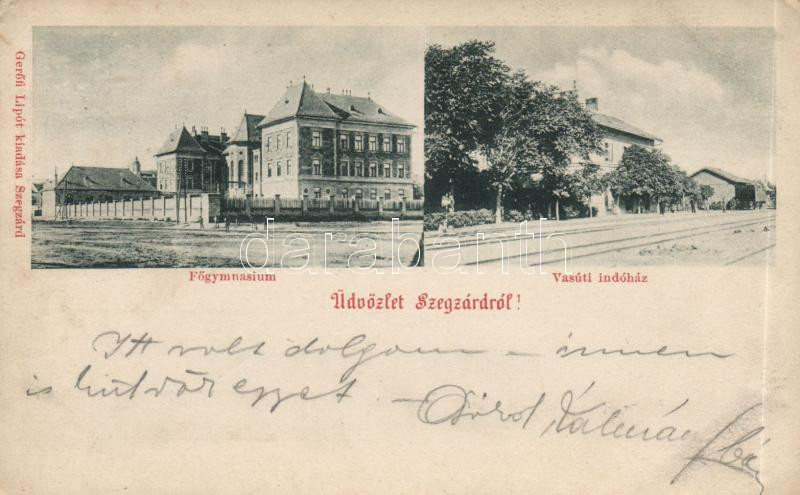 Gerőfi Lipót kiadása Szegzárd
darabanth
Főgymnasium
Vasúti indóház
Üdvözlet Szegzárdról!
Itt volt dolgom – innen
is egyet. – Kálmán